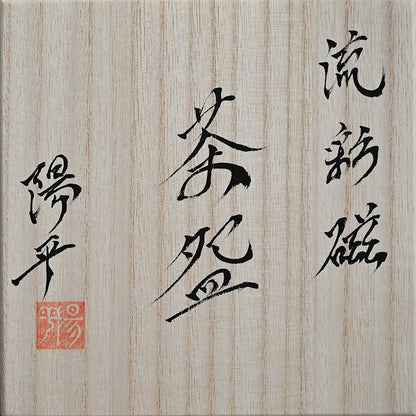 流彩磁
茶盌
陽平